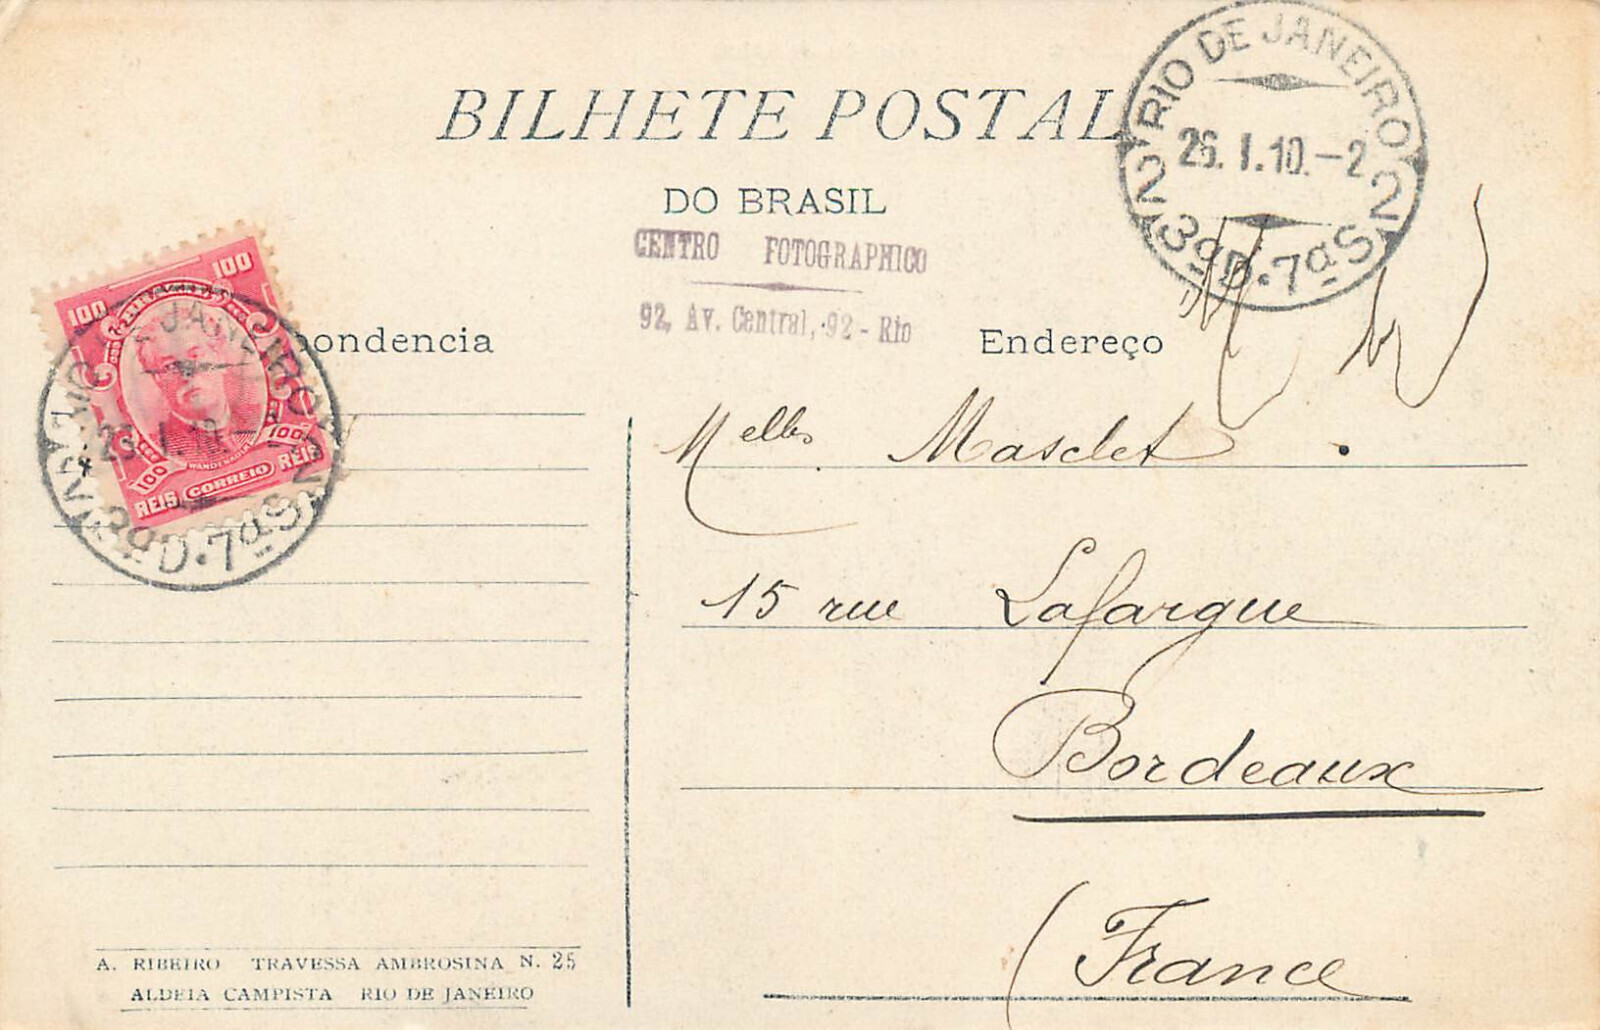 BILHETE POSTAL
DO BRASIL
RIO DE JANEIRO
26.1.10.-2
2 2
3ªD.7ªS
CENTRO FOTOGRAPHICO
92, Av. Central, 92 - Rio
pondencia
Endereço
100 100
WANDENKOLK
100 100
REIS CORREIO REIS
JANEIRO
3ªD.7ªS
Melles Masclet
15 rue Lafargue
Bordeaux
(France
A. RIBEIRO TRAVESSA AMBROSINA N. 25
ALDEIA CAMPISTA RIO DE JANEIRO